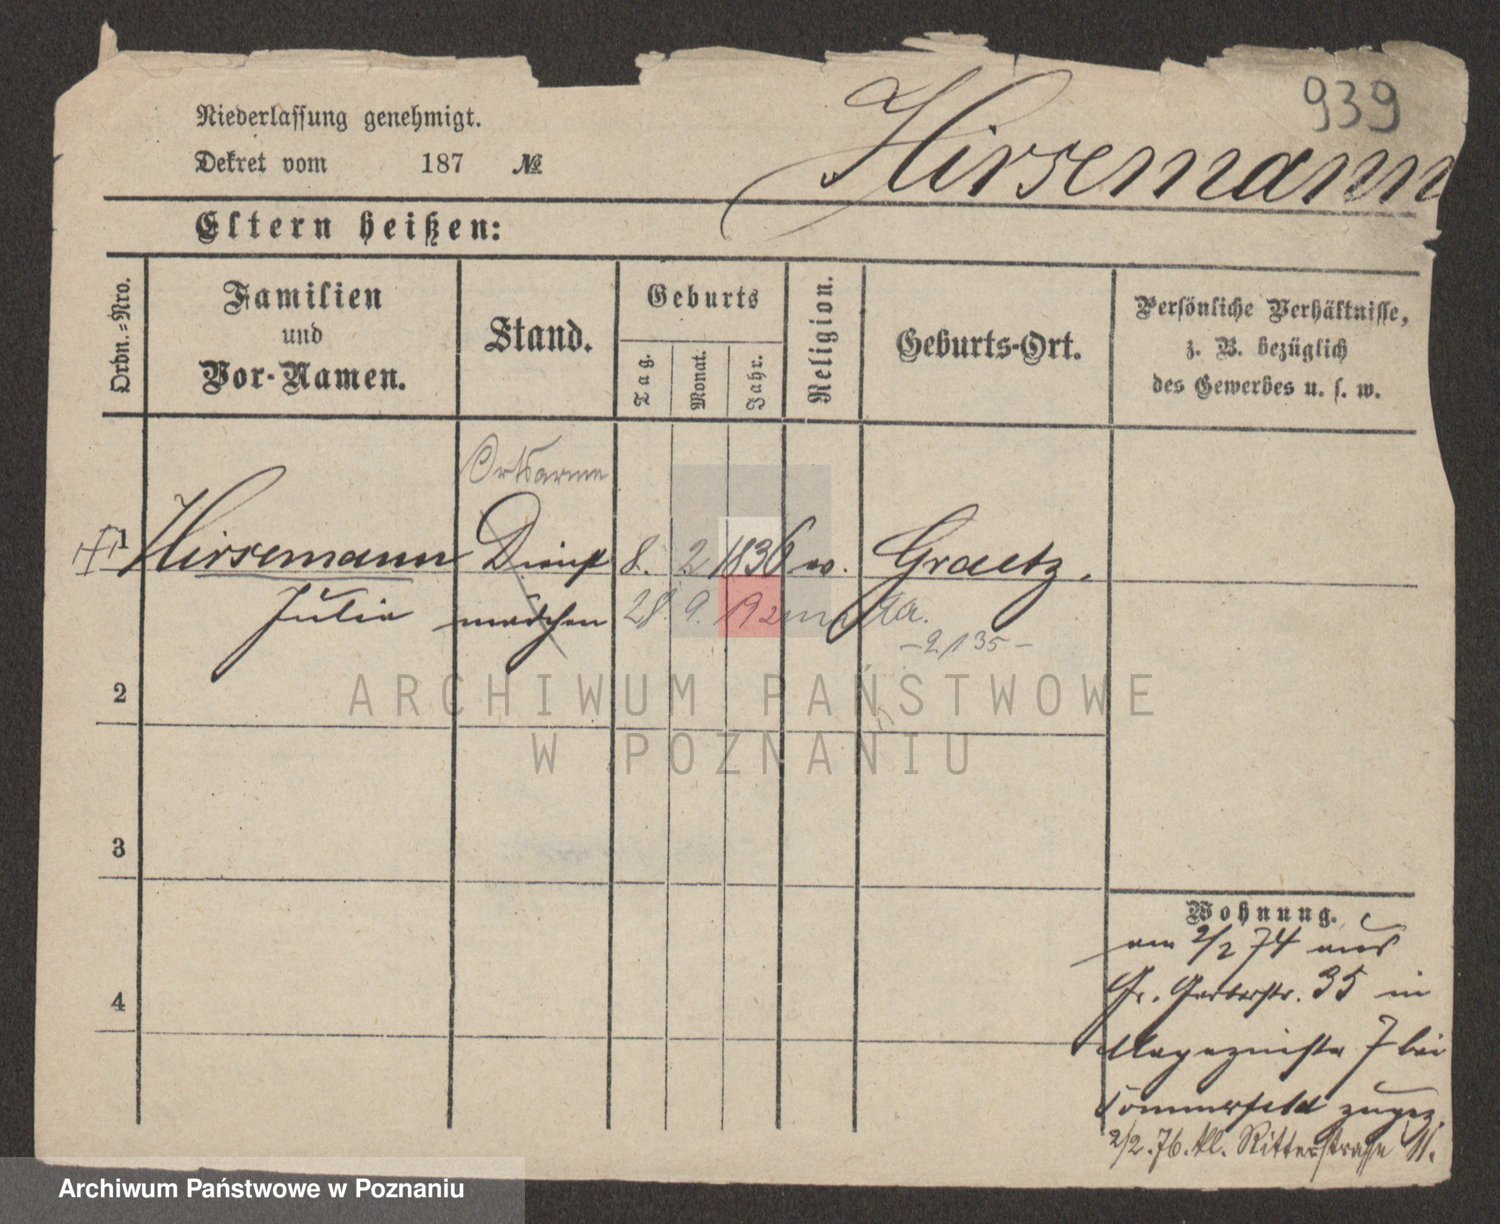 939
Niederlassung genehmigt.
Dekret vom 187 №
Hirsemann
Eltern heißen:
Ordn.-Nro.
Familien
und
Vor-Namen.
Stand.
Geburts
Tag.
Monat.
Jahr.
Religion.
Geburts-Ort.
Persönliche Verhältnisse,
z. B. bezüglich
des Gewerbes u. s. w.
Ortsarme
1 Hirsemann Dienst 8. 2 1836 Graetz.
Julie mädchen 28. 9.
2
3
4
Wohnung.
am 2/2 74 aus
Gr. Gerberstr. 35 in
7 bei
Sommerfeld zugez.
2/2. 76. kl. Ritterstrasse 11.
ARCHIWUM PAŃSTWOWE
W POZNANIU
Archiwum Państwowe w Poznaniu